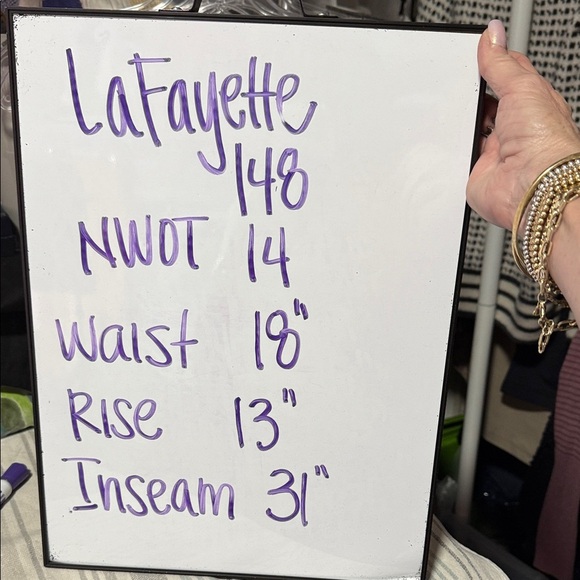 LaFayette
148
NWOT 14
Waist 18"
Rise 13"
Inseam 31"